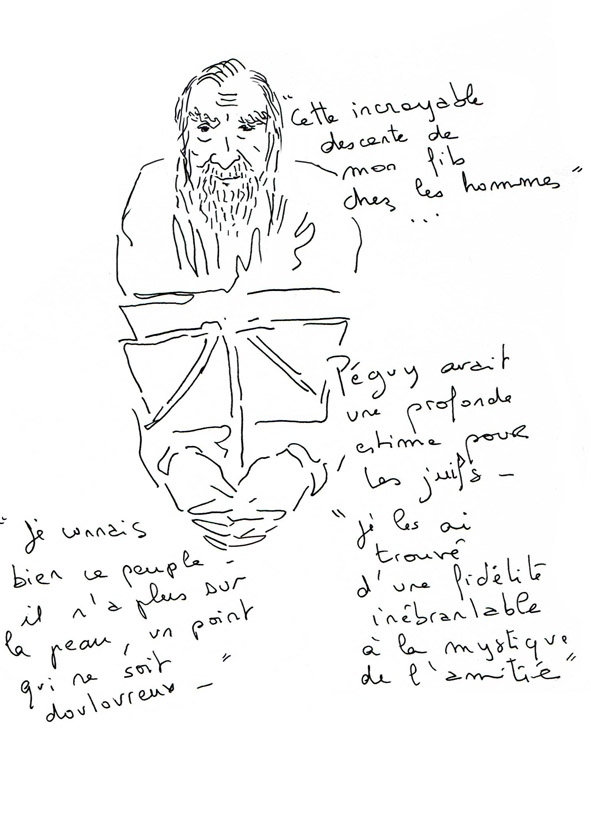 "Cette incroyable
descente de
mon fils
chez les hommes"
...
Péguy avait
une profonde
estime pour
les juifs –
"Je les ai
trouvé
d'une fidélité
inébranlable
à la mystique
de l'amitié"
"Je connais
bien ce peuple –
il n'a plus sur
la peau, un point
qui ne soit
douloureux – "